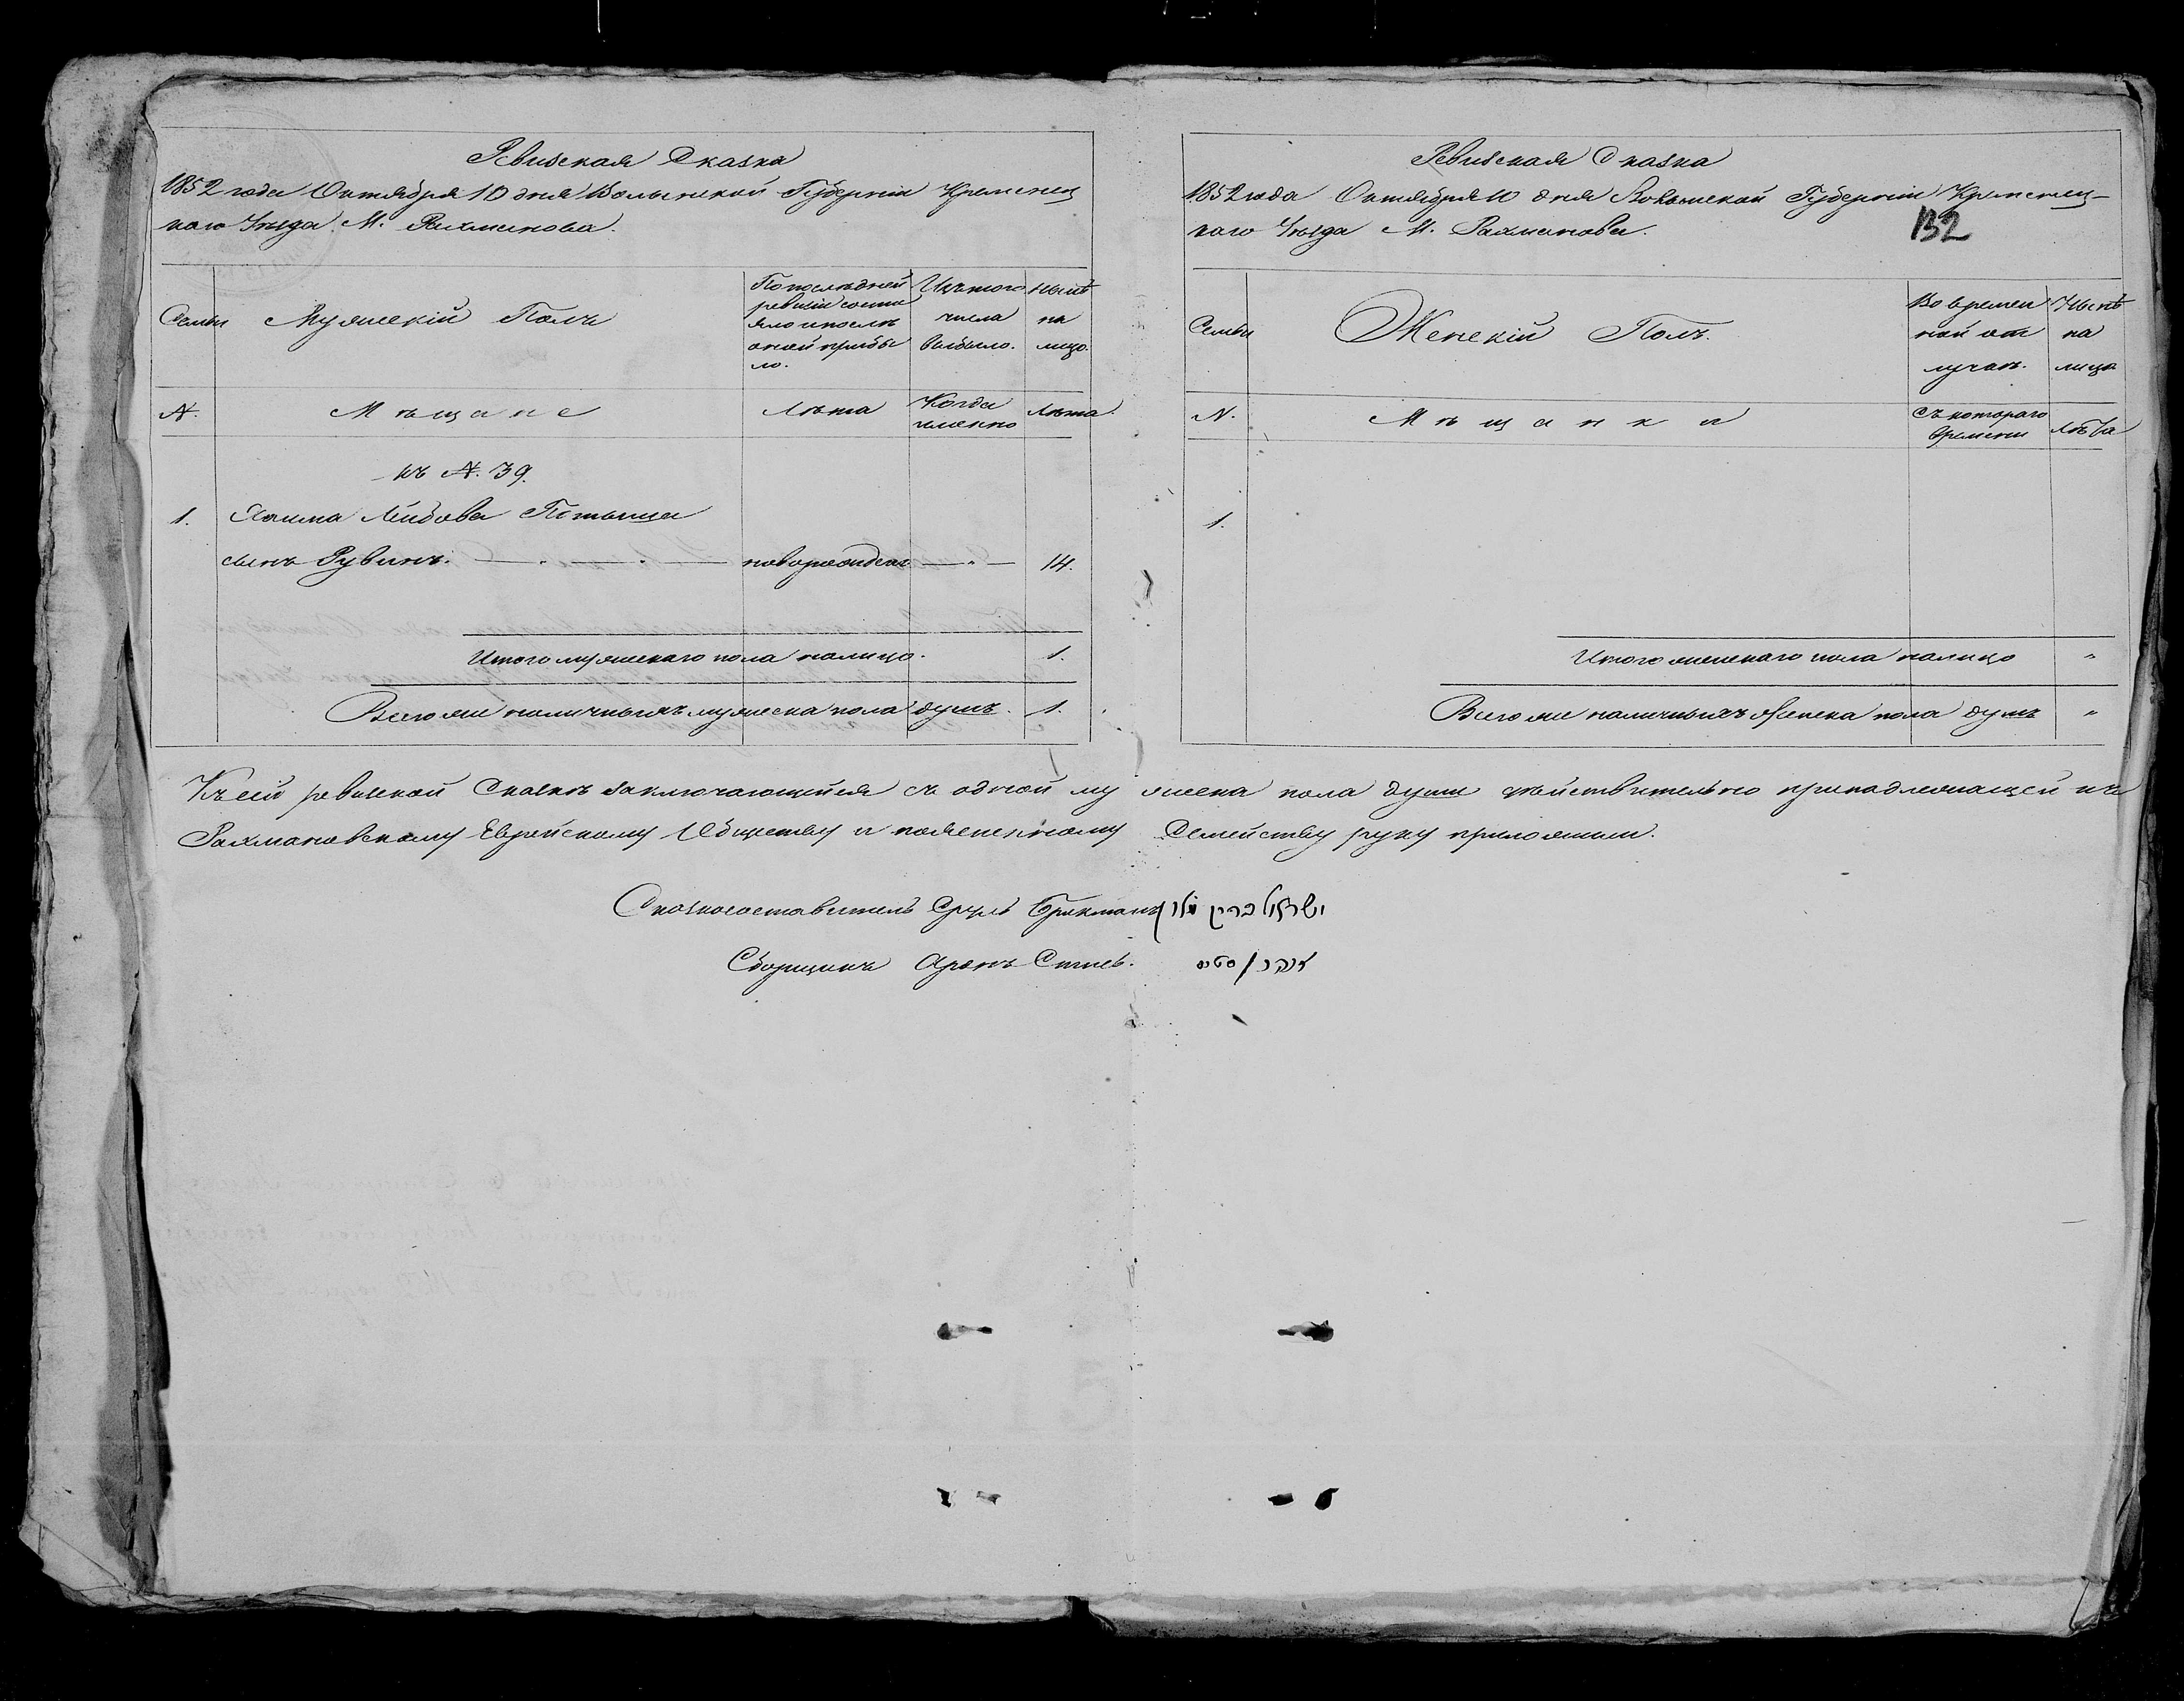 Ревизская Сказка
1852 года Октября 10 дня Волынской Губернии Кременец
каго Уезда М. Рахманова.
Семьи
Мужеский Полъ
По последней
ревизии состо
яло и после
оной прибы
ло.
Изъ того
числа
выбыло.
Ныне
на
лицо.
N.
Мѣщане
Лѣта
Когда
именно
Лѣта.
къ N. 39.
1. Хаима Лейбова
сынъ Рувинъ. новорожден 14.
Итого мужескаго пола налицо. 1.
Всего же наличныхъ мужеска пола душъ. 1.
Ревизская Сказка
1852 года Октября 10 дня Волынской Губернии Кременец-
каго Уезда М. Рахманова.
132
Семьи
Женский Полъ.
Во времен
ной от
лучке.
Ныне
на
лицо
N.
Мѣщанки
Съ котораго
времени
Лѣта
1.
Итого женскаго пола налицо "
Всего же наличныхъ женска пола душъ "
Къ сей ревизской Сказке заключающейся съ одной мужеска пола души действительно принадлежащей къ
Рахмановскому Еврейскому Обществу и Семейству руку приложили.
Сказкосоставитель Сруль Брикманъ ישראל בריקמאן
Сборщикъ Аронъ